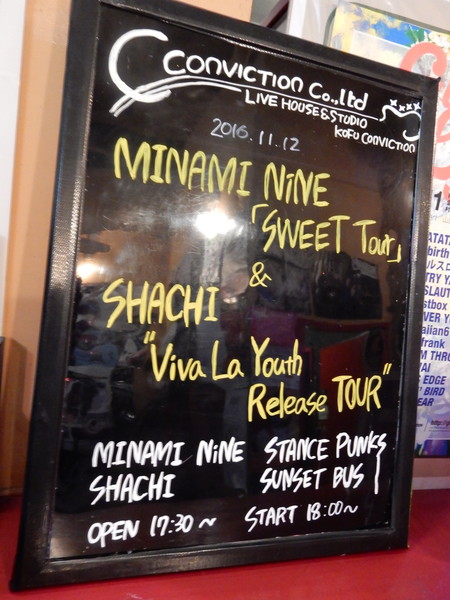 CONVICTION Co.,ltd
LIVE HOUSE&STUDIO
KOFU CONVICTION
2016.11.12
MINAMI NiNE
「SWEET Tour」
&
SHACHI
"Viva La Youth
Release TOUR"
MINAMI NiNE STANCE PUNKS
SHACHI SUNSET BUS
OPEN 17:30~ START 18:00~
ATATA
birth
TRY YA
SLAUT
stbox
VER YA
aiian6
frank
M THRO
TAI
EDGE
BIRD
EAR
http://